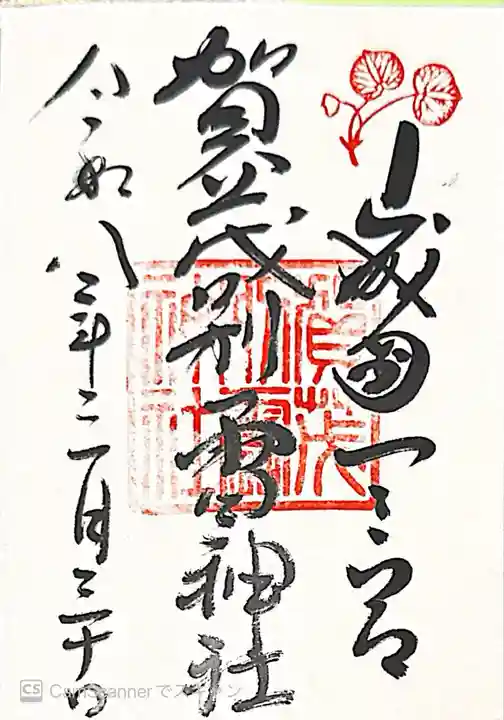 山城国一之宮
賀茂別雷神社
令和八年三月三十日
CS CamScannerでスキャン